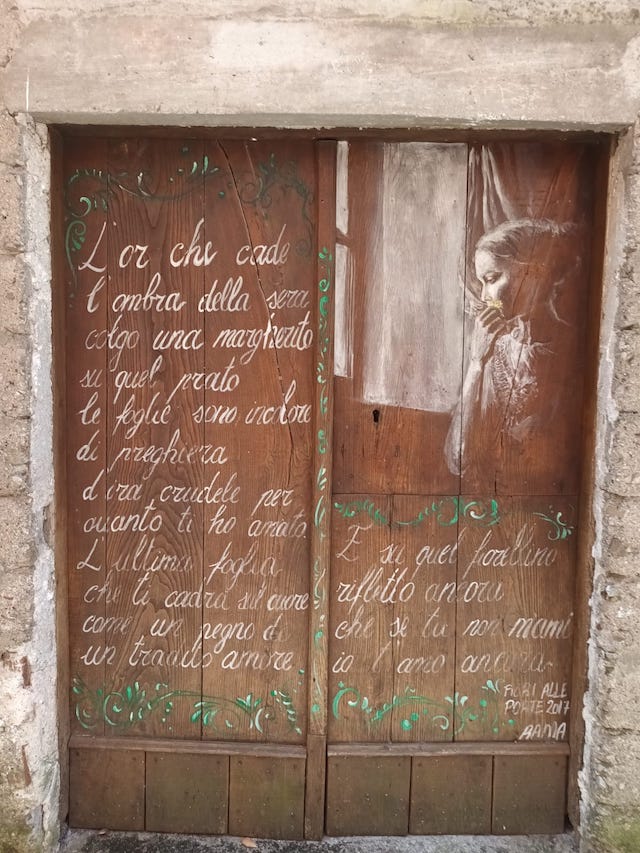 L'or che cade
l'ombra della sera
colgo una margherita
su quel prato
le foglie sono incolore
di preghiera
d'ira crudele per
quanto ti ho amato.
L'ultima foglia
che ti cadrà sul cuore
come un pegno di
un tradito amore.
E su quel fiorellino
rifletto ancora
che se tu non m'ami
io t'amo ancora
FIORI ALLE
PORTE 2017